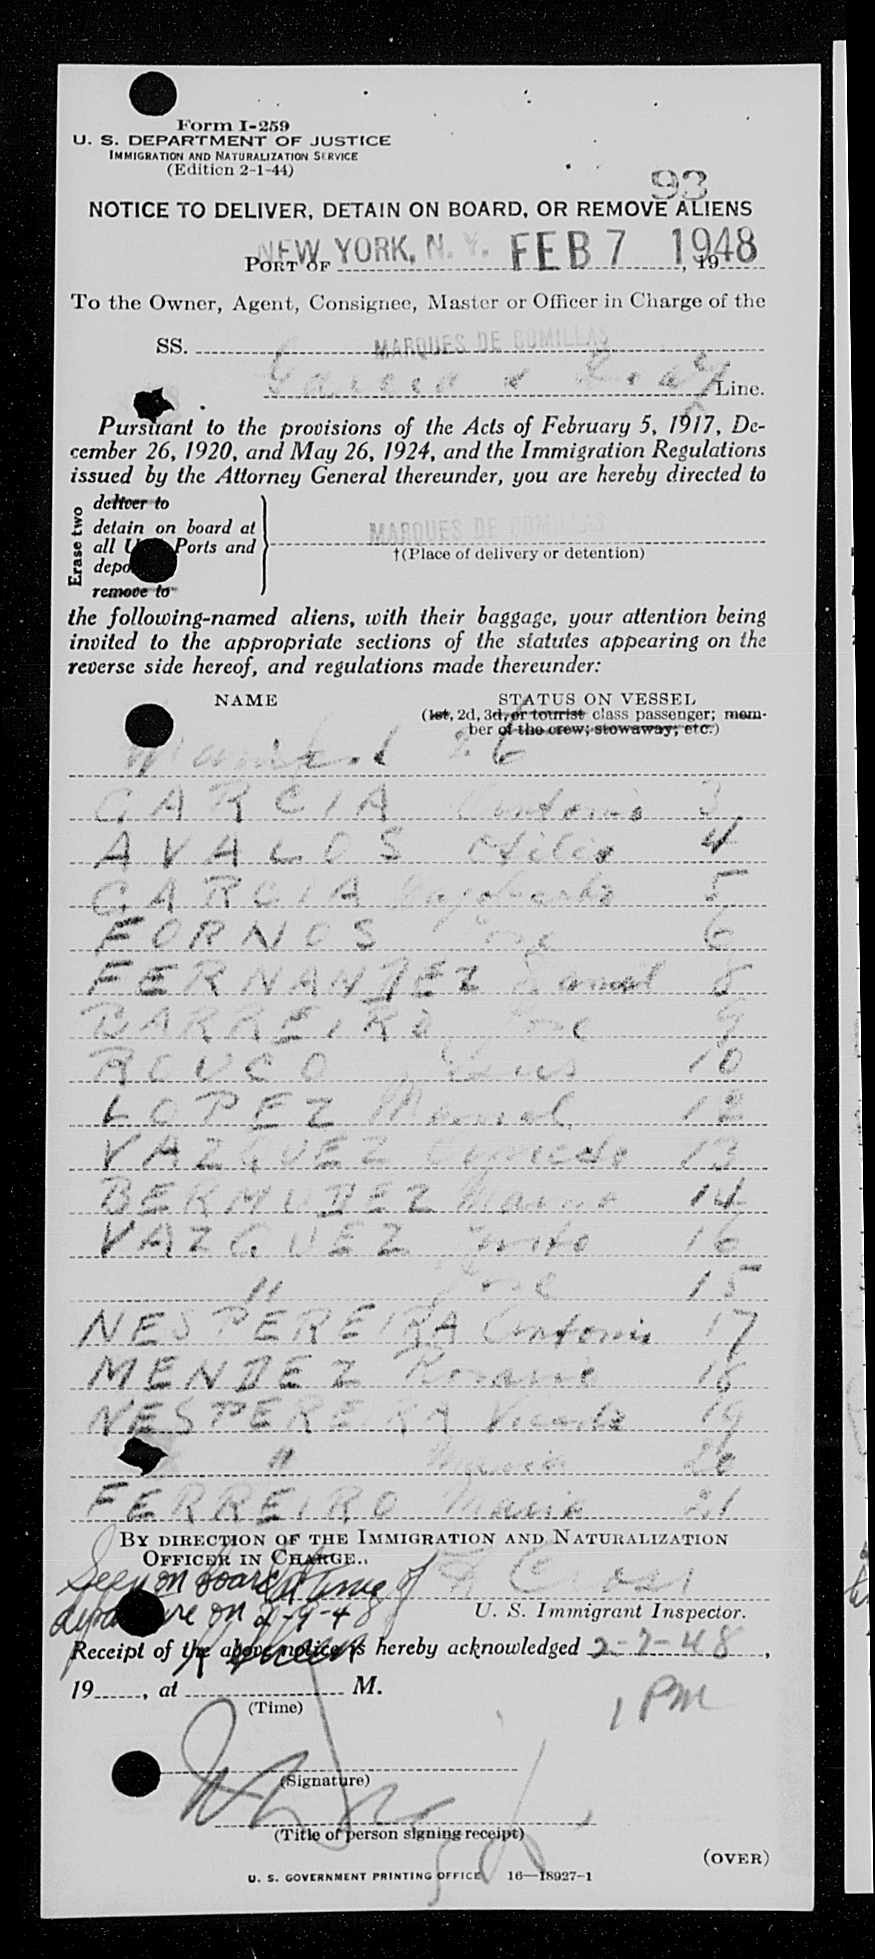 Form I-259
U. S. DEPARTMENT OF JUSTICE
IMMIGRATION AND NATURALIZATION SERVICE
(Edition 2-1-44)
93
NOTICE TO DELIVER, DETAIN ON BOARD, OR REMOVE ALIENS
PORT OF NEW YORK, N. Y. FEB 7 , 1948
To the Owner, Agent, Consignee, Master or Officer in Charge of the
SS. MARQUES DE COMILLAS
Garcia & Diaz Line.
Pursuant to the provisions of the Acts of February 5, 1917, De-
cember 26, 1920, and May 26, 1924, and the Immigration Regulations
issued by the Attorney General thereunder, you are hereby directed to
Erase two
deliver to
detain on board at
all U. S. Ports and
MARQUES DE COMILLAS
†(Place of delivery or detention)
remove to
the following-named aliens, with their baggage, your attention being
invited to the appropriate sections of the statutes appearing on the
reverse side hereof, and regulations made thereunder:
NAME STATUS ON VESSEL
(1st, 2d, 3d, or tourist class passenger; mem-
ber of the crew; stowaway; etc.)
Manifest 26
GARCIA Antonio 3
AVALOS Otilio 4
GARCIA 5
FORNOS Jose 6
FERNANDEZ 8
BARREIRO Jose 9
ROUCO Jesus 10
LOPEZ Manuel 12
VAZQUEZ 13
BERMUDEZ 14
VAZQUEZ 16
" Jose 15
NESPEREIRA Antonio 17
MENDEZ Rosario 18
NESPEREIRA Vicente 19
" Maria 20
FERREIRO Maria 21
BY DIRECTION OF THE IMMIGRATION AND NATURALIZATION
OFFICER IN CHARGE..
Seen on board at time of
departure on 2-9-48
U. S. Immigrant Inspector.
Receipt of the above notice is hereby acknowledged 2-7-48 ,
19 , at M. 1 PM
(Time)
(Signature)
(Title of person signing receipt)
(OVER)
U. S. GOVERNMENT PRINTING OFFICE 16—18927-1